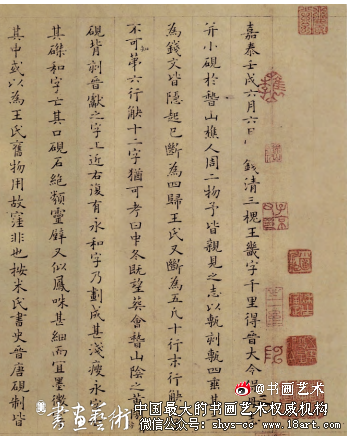 嘉泰壬戌六月六日錢清三槐王畿字千里得晉大令
并小硯於嵇山樵人周二物予皆觀見之志以甎刻甎四垂其
為錢文皆隱起已斷為四歸王氏又斷為五凡十行末行缺
不可知第六行缺十二字猶可考曰中冬既望葬會嵇山陰之黃
硯背刻晉獻之字上近右復有永和字乃劃成甚淺瘦永字
其磔和字亡其口硯石絕類靈璧又似鳳咮甚細而宜墨微
其中或以為王氏舊物用故窪非也按米氏書史晉唐硯制皆
@书画艺术
書畫藝術
中国最大的书画艺术权威机构
微信公众号：shys-cc www.18art.com